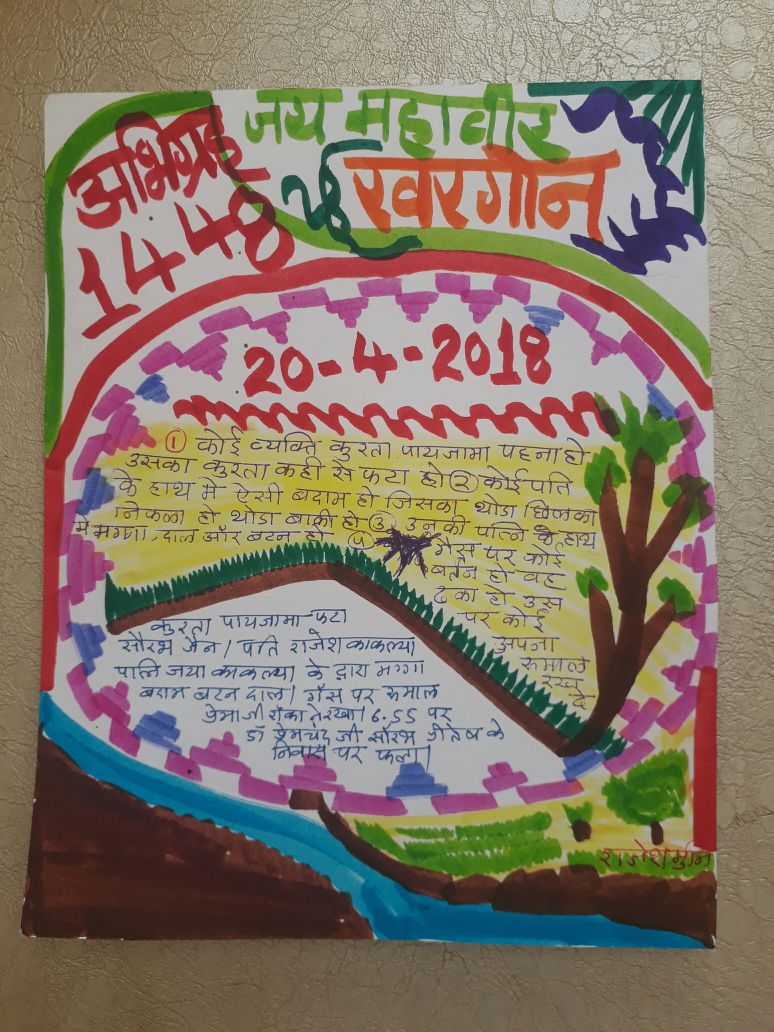 जय महावीर
अभिग्रह
1448
खरगोन
20-4-2018
① कोई व्यक्ति कुरता पायजामा पहना हो
उसका कुरता कही से फटा हो ② कोई पति
के हाथ में ऐसी बदाम हो जिसका थोडा छिलका
निकला हो थोडा बाकी हो ③ उनकी पत्नि के हाथ
मे मग्गा दाल और बटन हो ④ गैस पर कोई
बर्तन हो वह
ढका हो उस
पर कोई
अपना
रुमाल
रख
दे
कुरता पायजामा फटा
सौरभ जैन। पति राजेश काकल्या
पत्नि जया काकल्या के द्वारा मग्गा
बदाम बटन दाल। गैस पर रुमाल
रखा। 6.55 पर
डॉ प्रेमचंद जी सौरभ के
निवास पर फला।
राजेशमुनि